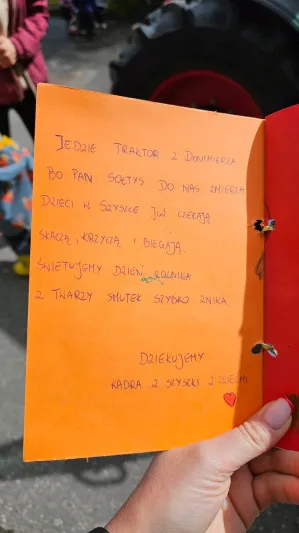 JEDZIE TRAKTOR Z DOMIMIERZA
BO PAN SOŁTYS DO NAS ZMIERZA
DZIECI W SZYSZCE JUŻ CZEKAJĄ
SKACZĄ, KRZYCZĄ I BIEGAJĄ.
ŚWIĘTUJEMY DZIEŃ ROLNIKA
Z TWARZY SMUTEK SZYBKO ZNIKA
DZIĘKUJEMY
KADRA Z SZYSZKI Z DZIEĆMI